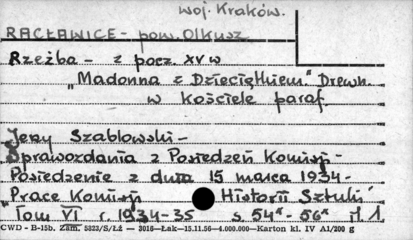 woj. Kraków.
RACŁAWICE - pow. Olkusz
Rzeźba - z pocz. XV w
"Madonna z Dzieciątkiem" Drewn.
w kościele paraf.
Jerzy Szablowski -
Sprawozdania z Posiedzeń Komisji -
Posiedzenie z dnia 15 marca 1934 -
"Prace Komisji Historii Sztuki"
Tom VI r. 1934-35 s. 54* - 56* il. 1.
CWD - B-15b. Zam. 5823/S/Łż — 3016—Łak—15.11.56—4.000.000—Karton kl. IV A1/200 g